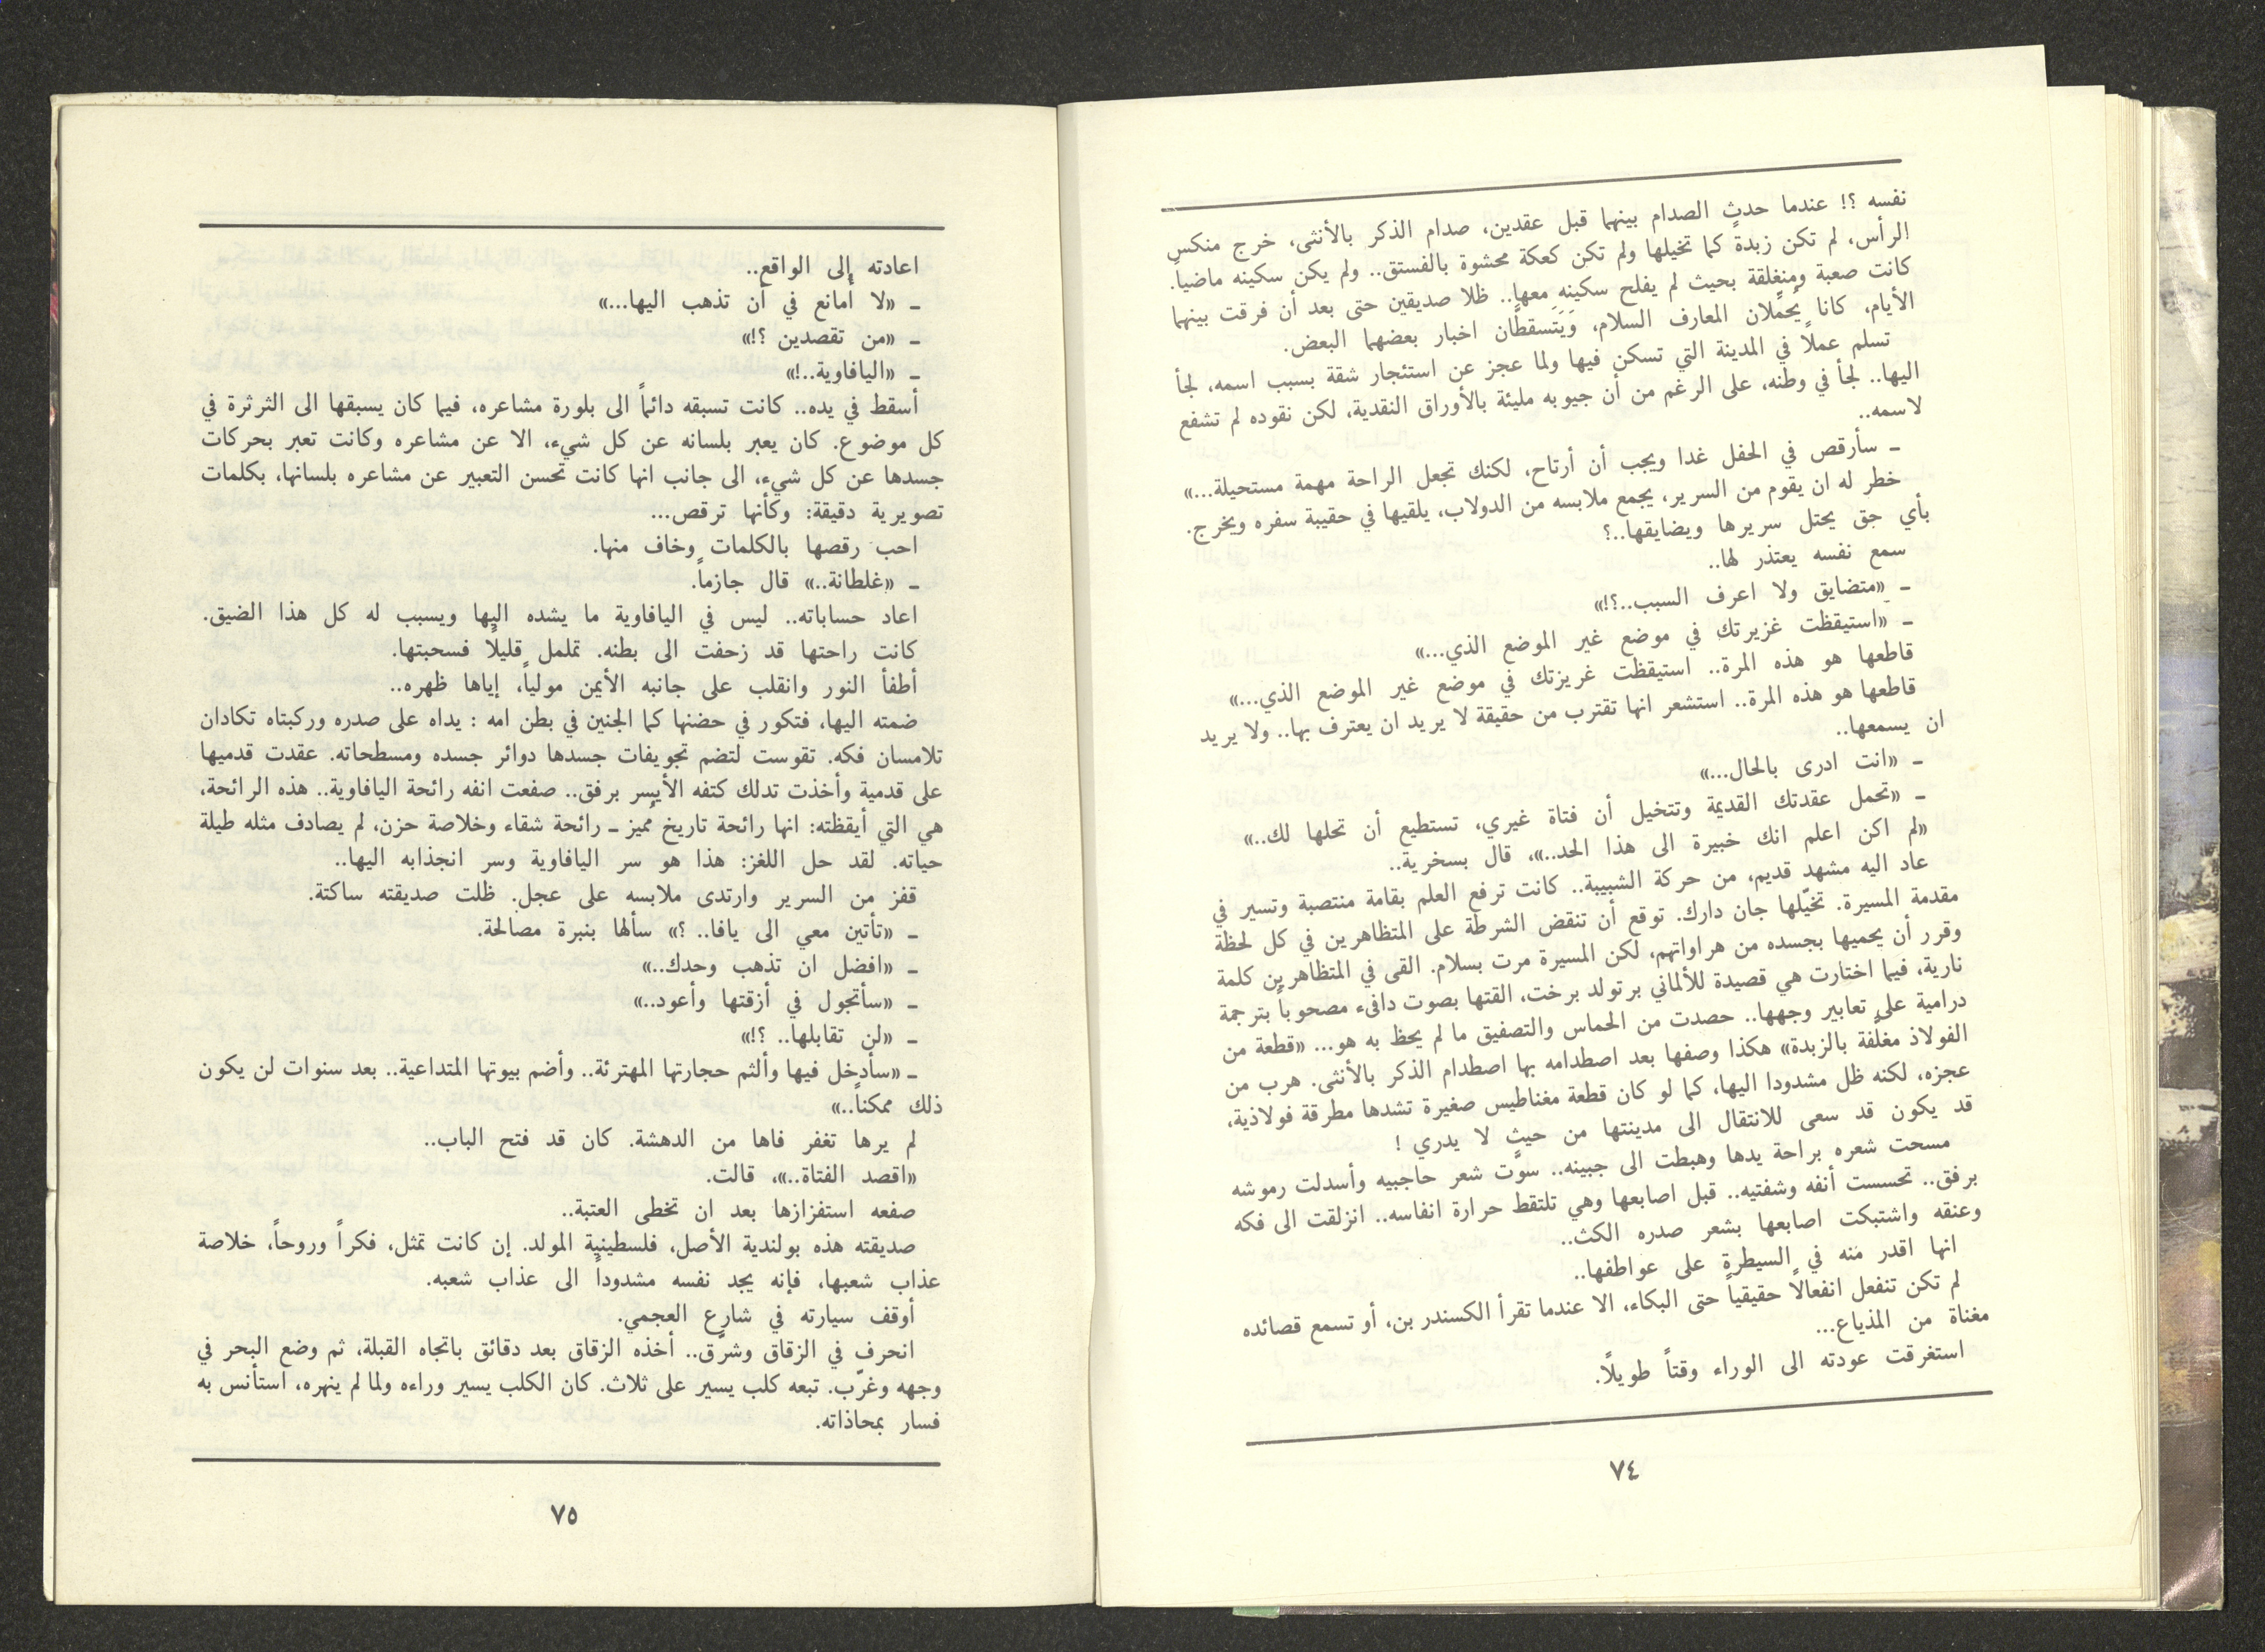 نفسه ؟! عندما حدث الصدام بينهما قبل عقدين، صدام الذكر بالأنثى، خرج منكس
الرأس، لم تكن زبدة كما تخيلها ولم تكن كعكة محشوة بالفستق.. ولم يكن سكينه ماضياً.
كانت صعبة ومنغلقة بحيث لم يفلح سكينه معها.. ظلا صديقين حتى بعد أن فرقت بينهما
الأيام، كانا يُحمّلان المعارف السلام، وَيَتَسقطان اخبار بعضهما البعض.
تسلم عملاً في المدينة التي تسكن فيها ولما عجز عن استئجار شقة بسبب اسمه، لجأ
اليها.. لجأ في وطنه، على الرغم من أن جيوبه مليئة بالأوراق النقدية، لكن نقوده لم تشفع
لاسمه..
ـ سأرقص في الحفل غدا ويجب أن أرتاح، لكنك تجعل الراحة مهمة مستحيلة...»
خطر له ان يقوم من السرير، يجمع ملابسه من الدولاب، يلقيها في حقيبة سفره ويخرج.
بأي حق يحتل سريرها ويضايقها..؟
سمع نفسه يعتذر لها..
ـ «متضايق ولا اعرف السبب..؟!»
ـ «استيقظت غزيرتك في موضع غير الموضع الذي...»
قاطعها هو هذه المرة.. استيقظت غريزتك في موضع غير الموضع الذي...»
قاطعها هو هذه المرة.. استشعر انها تقترب من حقيقة لا يريد ان يعترف بها.. ولا يريد
ان يسمعها..
ـ «انت ادرى بالحال...»
ـ «تحمل عقدتك القديمة وتتخيل أن فتاة غيري، تستطيع أن تحلها لك..»
«لم اكن اعلم انك خبيرة الى هذا الحد..»، قال بسخرية..
عاد اليه مشهد قديم، من حركة الشبيبة.. كانت ترفع العلم بقامة منتصبة وتسير في
مقدمة المسيرة. تخيّلها جان دارك. توقع أن تنقض الشرطة على المتظاهرين في كل لحظة
وقرر أن يحميها بجسده من هراواتهم، لكن المسيرة مرت بسلام. القى في المتظاهرين كلمة
نارية، فيما اختارت هي قصيدة للألماني برتولد برخت، القتها بصوت دافىء مصحوباً بترجمة
درامية على تعابير وجهها.. حصدت من الحماس والتصفيق ما لم يحظ به هو... «قطعة من
الفولاذ مغلّفة بالزبدة» هكذا وصفها بعد اصطدامه بها اصطدام الذكر بالأنثى. هرب من
عجزه، لكنه ظل مشدودا اليها، كما لو كان قطعة مغناطيس صغيرة تشدها مطرقة فولاذية،
قد يكون قد سعى للانتقال الى مدينتها من حيث لا يدري !
مسحت شعره براحة يدها وهبطت الى جبينه.. سوّت شعر حاجبيه وأسدلت رموشه
برفق.. تحسست أنفه وشفتيه.. قبل اصابعها وهي تلتقط حرارة انفاسه.. انزلقت الى فكه
وعنقه واشتبكت اصابعها بشعر صدره الكث..
انها اقدر منه في السيطرة على عواطفها..
لم تكن تنفعل انفعالاً حقيقياً حتى البكاء، الا عندما تقرأ الكسندر بن، أو تسمع قصائده
مغناة من المذياع...
استغرقت عودته الى الوراء وقتاً طويلاً.
٧٤
اعادته إلى الواقع..
ـ «لا أمانع في أن تذهب اليها...»
ـ «من تقصدين ؟!»
ـ «اليافاوية..!»
أسقط في يده.. كانت تسبقه دائماً الى بلورة مشاعره، فيما كان يسبقها الى الثرثرة في
كل موضوع. كان يعبر بلسانه عن كل شيء، الا عن مشاعره وكانت تعبر بحركات
جسدها عن كل شيء، الى جانب انها كانت تحسن التعبير عن مشاعره بلسانها، بكلمات
تصويرية دقيقة: وكأنها ترقص...
احب رقصها بالكلمات وخاف منها.
ـ «غلطانة..» قال جازماً.
اعاد حساباته.. ليس في اليافاوية ما يشده اليها ويسبب له كل هذا الضيق.
كانت راحتها قد زحفت الى بطنه. تململ قليلاً فسحبتها.
أطفأ النور وانقلب على جانبه الأيمن مولياً، إياها ظهره..
ضمته اليها، فتكور في حضنها كما الجنين في بطن امه : يداه على صدره وركبتاه تكادان
تلامسان فكه. تقوست لتضم تجويفات جسدها دوائر جسده ومسطحاته. عقدت قدميها
على قدمية وأخذت تدلك كتفه الأيسر برفق.. صفعت انفه رائحة اليافاوية.. هذه الرائحة،
هي التي أيقظته: انها رائحة تاريخ مُميز ـ رائحة شقاء وخلاصة حزن، لم يصادف مثله طيلة
حياته. لقد حل اللغز: هذا هو سر اليافاوية وسر انجذابه اليها..
قفز من السرير وارتدى ملابسه على عجل. ظلت صديقته ساكتة.
ـ «تأتين معي الى يافا.. ؟» سألها بنبرة مصالحة.
ـ «افضل ان تذهب وحدك..»
ـ «سأتجول في أزقتها وأعود..»
ـ «لن تقابلها.. ؟!»
ـ «سأدخل فيها وألثم حجارتها المهترئة.. وأضم بيوتها المتداعية.. بعد سنوات لن يكون
ذلك ممكناً..»
لم يرها تغفر فاها من الدهشة. كان قد فتح الباب..
«اقصد الفتاة..»، قالت.
صفعه استفزازها بعد ان تخطى العتبة..
صديقته هذه بولندية الأصل، فلسطينية المولد. إن كانت تمثل، فكراً وروحاً، خلاصة
عذاب شعبها، فإنه يجد نفسه مشدوداً الى عذاب شعبه.
أوقف سيارته في شارع العجمي.
انحرف في الزقاق وشرّق.. أخذه الزقاق بعد دقائق باتجاه القبلة، ثم وضع البحر في
وجهه وغرّب. تبعه كلب يسير على ثلاث. كان الكلب يسير وراءه ولما لم ينهره، استأنس به
فسار بمحاذاته.
٧٥